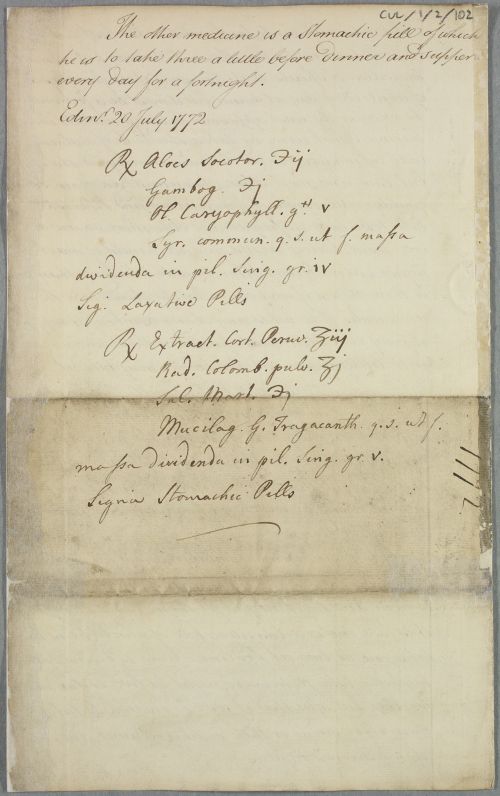 CUL/1/2/102
The other medicine is a stomachic pill of which
he is to take three a little before dinner and supper
every day for a fortnight.
Edinr. 20 July 1772
℞ Aloes Socotor. ℈ij
Gambog. ℈j
Ol. Caryophyll. gtt v
Syr. commun. q. s. ut f. maſsa
dividenda in pil. sing. gr. iv
Sig. Laxative Pills
℞ Extract. Cort. Peruv. ʒiij
Rad. Colomb. pulv. ʒj
Sal. Mart. ℈j
Mucilag. G. Tragacanth. q. s. ut f.
maſsa dividenda in pil. sing. gr. v.
Signa Stomachic Pills